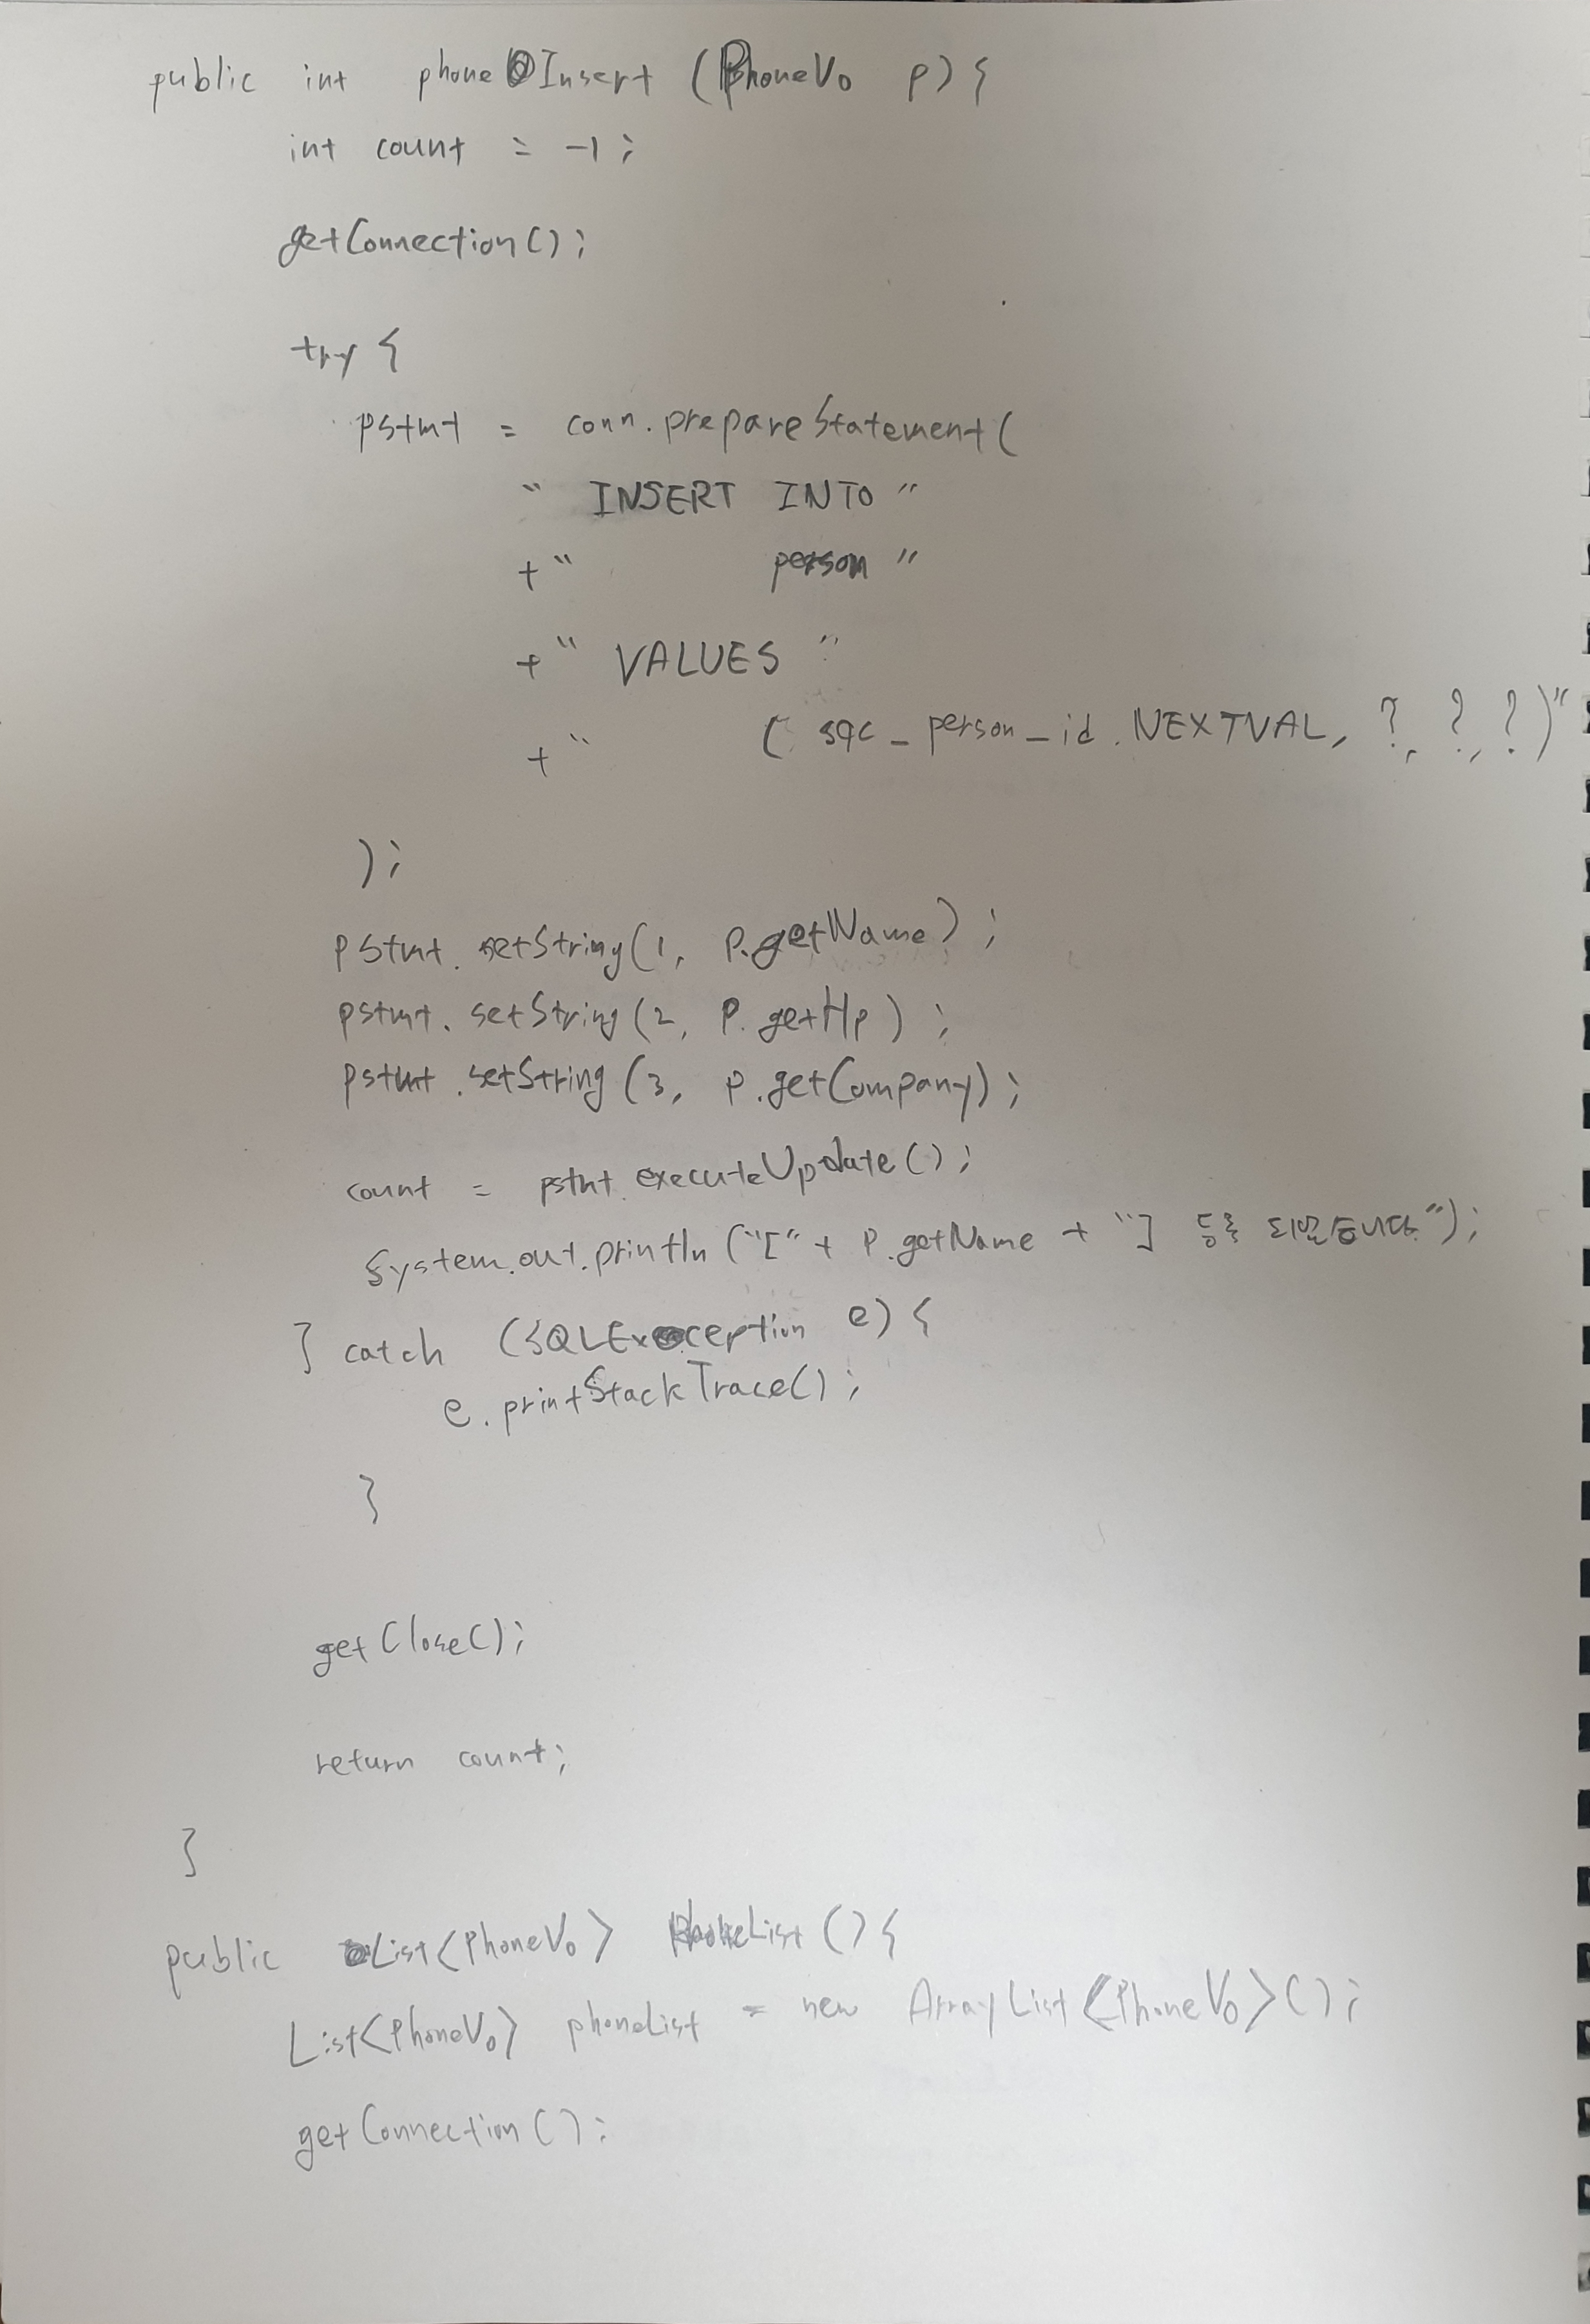 public int phoneInsert (PhoneVo p) {
int count = -1;
getConnection();
try {
pstmt = conn.prepareStatement(
" INSERT INTO "
+" person "
+" VALUES "
+" ( sqc_person_id.NEXTVAL, ?, ?, ?)"
);
pstmt.setString(1, p.getName);
pstmt.setString(2, p.getHp);
pstmt.setString(3, p.getCompany);
count = pstmt.executeUpdate();
System.out.println("["+ p.getName + "] 등록 되었습니다.");
} catch (SQLException e) {
e.printStackTrace();
}
getClose();
return count;
}
public List<PhoneVo> PhoneList () {
List<PhoneVo> phoneList = new ArrayList<PhoneVo>();
getConnection();